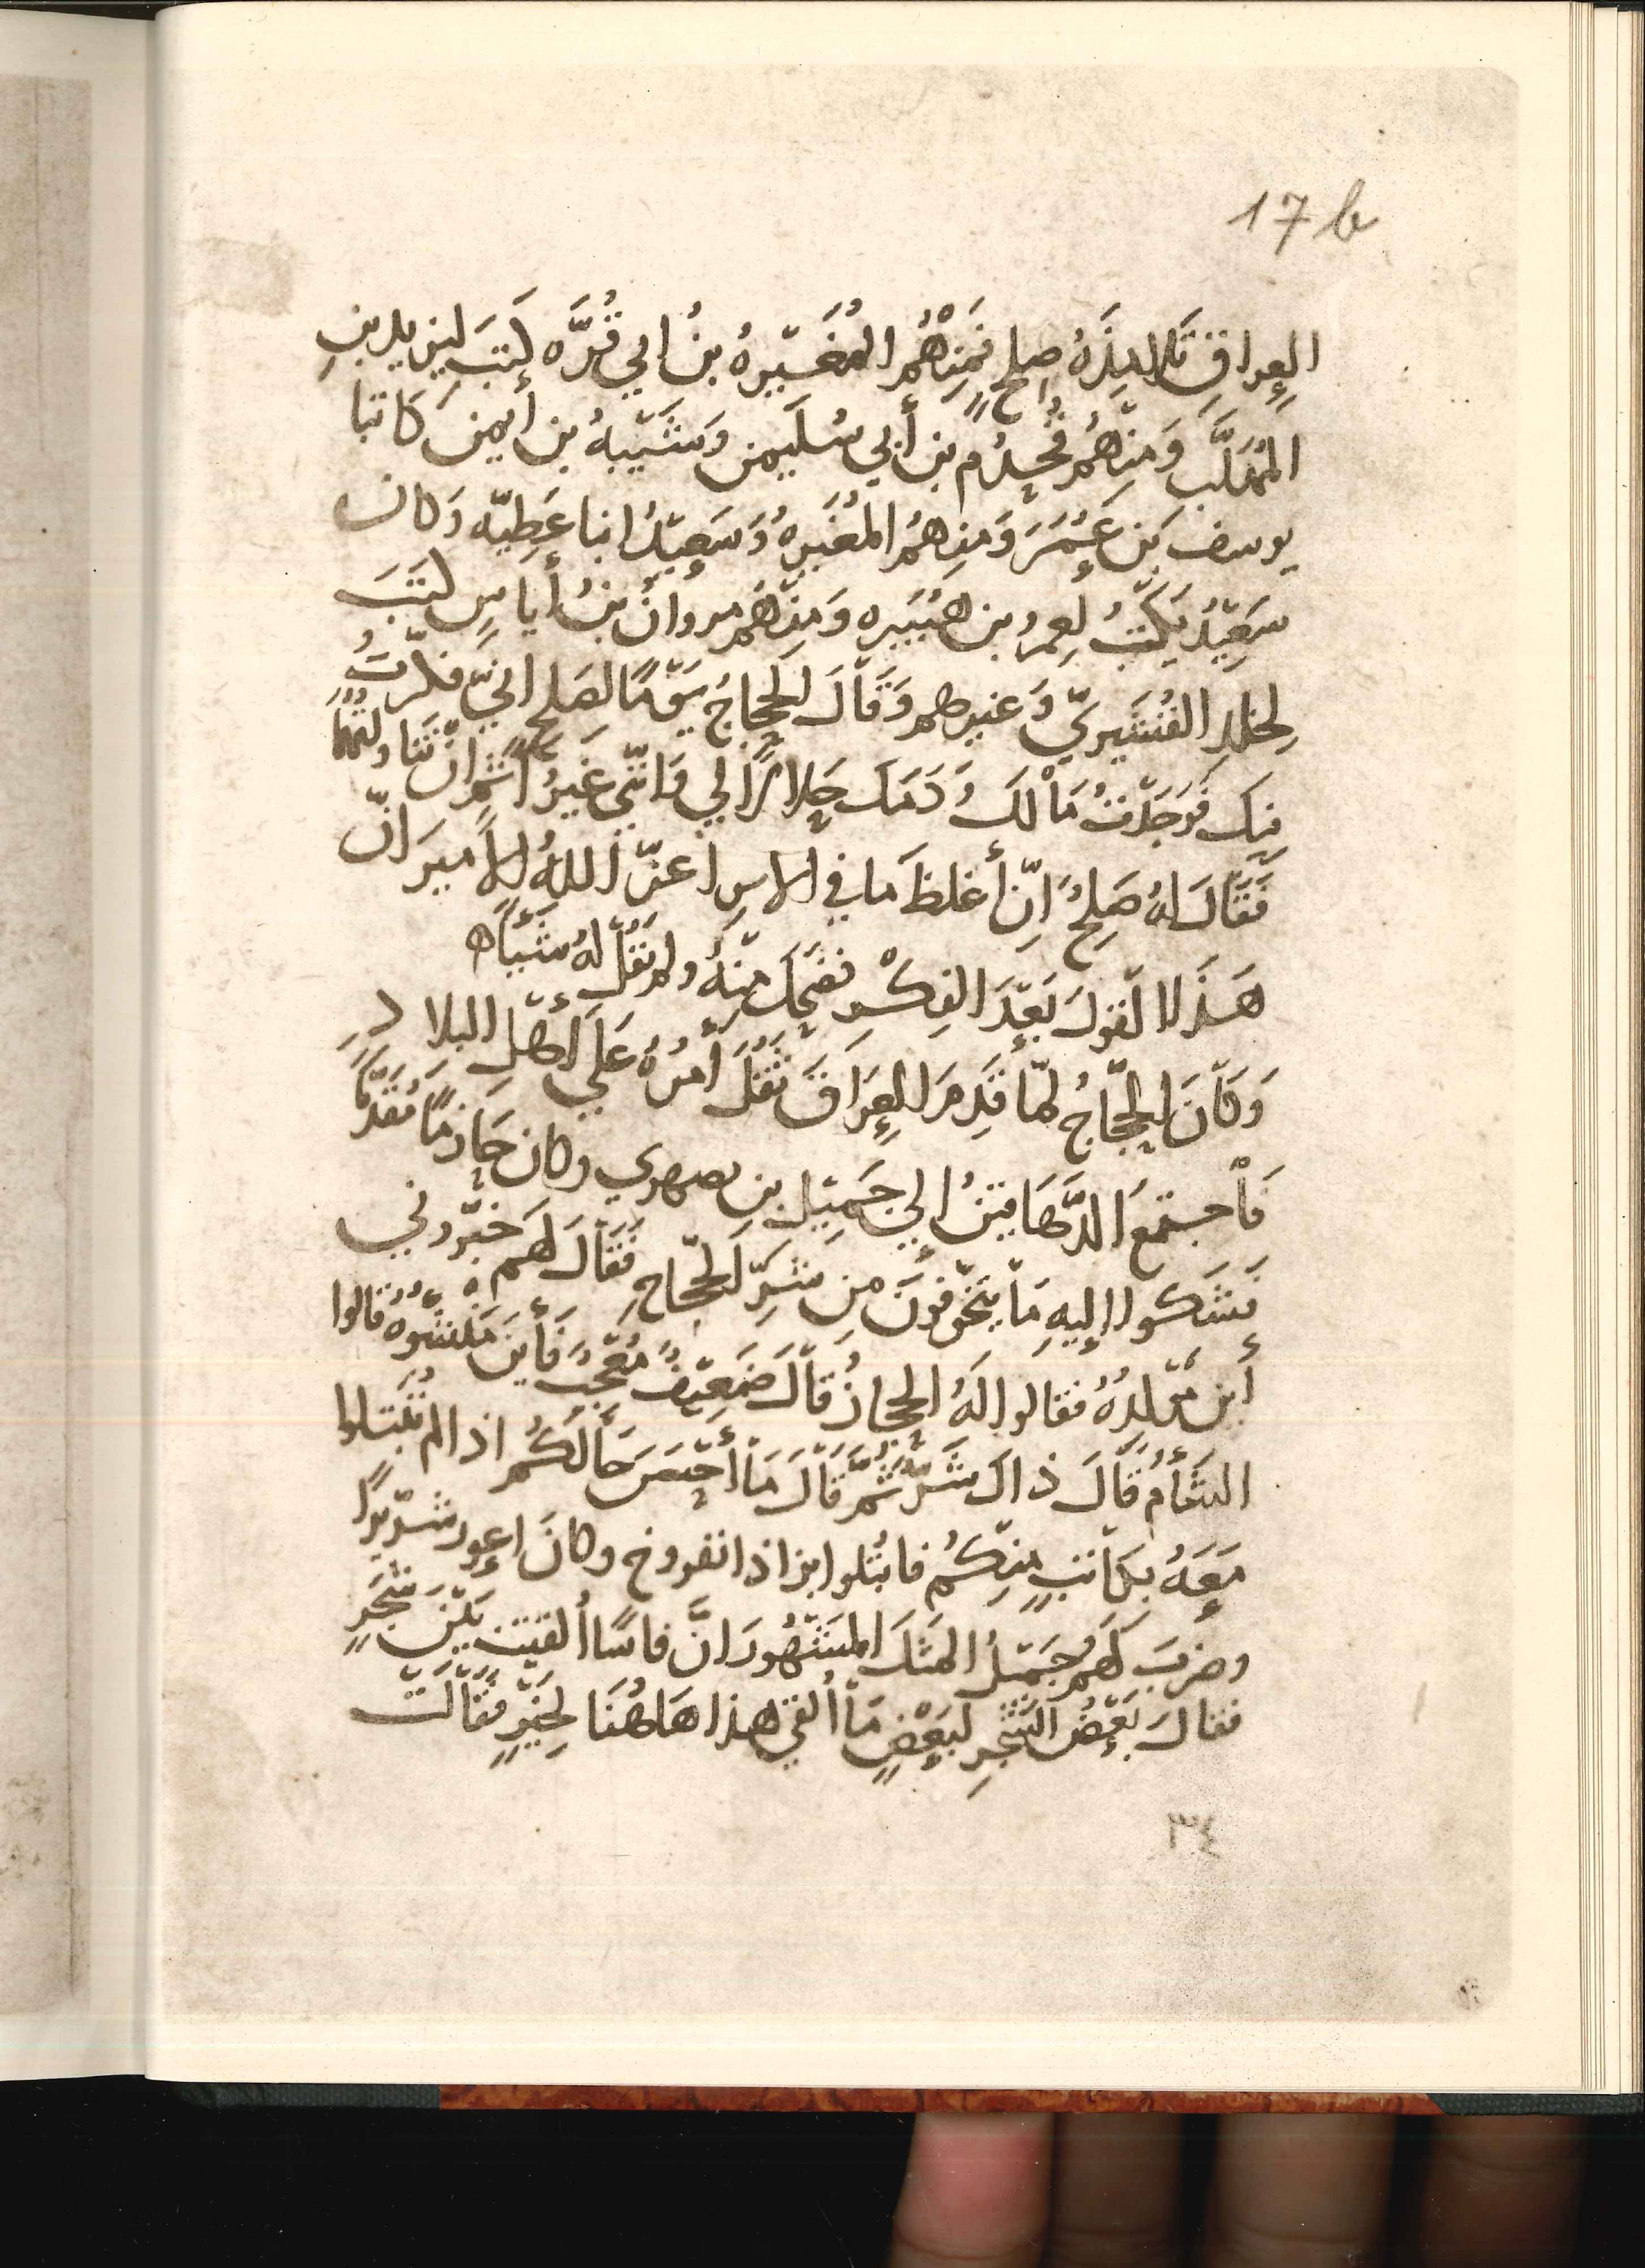 17 b
العِراقِ تَلامِذَةُ صلحٍ فَمِنْهُمُ المُغَيّرهُ بنُ ابي قُرَّه كَتَبَ ليزيد بنِ
المُهَلَّبِ وَمِنْهُم قَحْذَم بن أبي سُلَيمن وَشَيْبهُ بن أيمن كَاتبا
يوسف بَن عُمَرَ وَمِنهُمُ المُغيرهُ وَسَعِيْدُ ابنا عَطِيّه وَكان
سَعِيْدُ يَكْتُبُ لِعمر بن هُبَيره وَمِنْهُم مروانُ بنُ أياسٍ كَتَبَ
لِخلدِ القُشَيريّ وَغيرهم وَقَاْلَ الحجاجُ يَوْمًا لصَلحٍ انيّ فكّرتُ
فيك فَوَجَدْتُ مَاْلَكَ وَدَمَكَ حَلالاً لي وَانّني غَيْرُ آثمٍ انْ تَنَاولتُهُمَا
فَقَاْلَ لهُ صَلِحُ اِنّ أغلظَ ما في الامرِ اعزّ اللهُ الأميرَ انّ
هَذَا القولَ بَعْدَ الفِكْرِ فضَحِكَ مِنْهُ ولم يَقُلْ لهُ شَيْأً ه
وَكَاْنَ الحجّاجُ لمّا قَدِمَ العِرَاقَ ثقُلَ أمرُهُ عَلَي أَهْلِ البلادِ
فَاْجتمعَ الدَّهَاقينُ إلي جَمِيْل بن بصبهري وكان حَازمًا مُقَدَّمًا
فَشَكَوا إليهِ مَاْ يتَخَوّفونَ مِن شَرِّ الحجّاجِ فَقَاْلَ لَهم خبّروني
أَين مَوْلِدُهُ فقالوا لَهُ الحِجازُ قاْلَ ضَعِيْفٌ مُعْجِبٌ فَأَينَ مَنشَوُهُ قالوا
الشَأمُ قَاْلَ ذاك شَرٌّ ثُمَّ قَاْلَ مَاْ أحْسَنَ حَالَكُم اذا لم تُبْتَلوا
مَعَهُ بِكَاتبٍ مِنْكُم فابتُلوا بزاذانفروخ وكانَ اعور شريّرًا
وضربَ لَهمُ جَمْيلُ المثلَ المشهُورَ انَّ فاسًا أُلقيت بَيْنَ شَجَرٍ
فقالَ بَعْضُ الشجرِ لبَعْضٍ مَاْ أُلقي هذا هَاهُنَا لِخَيْرٍ فَقَاْلَتْ
٣٤